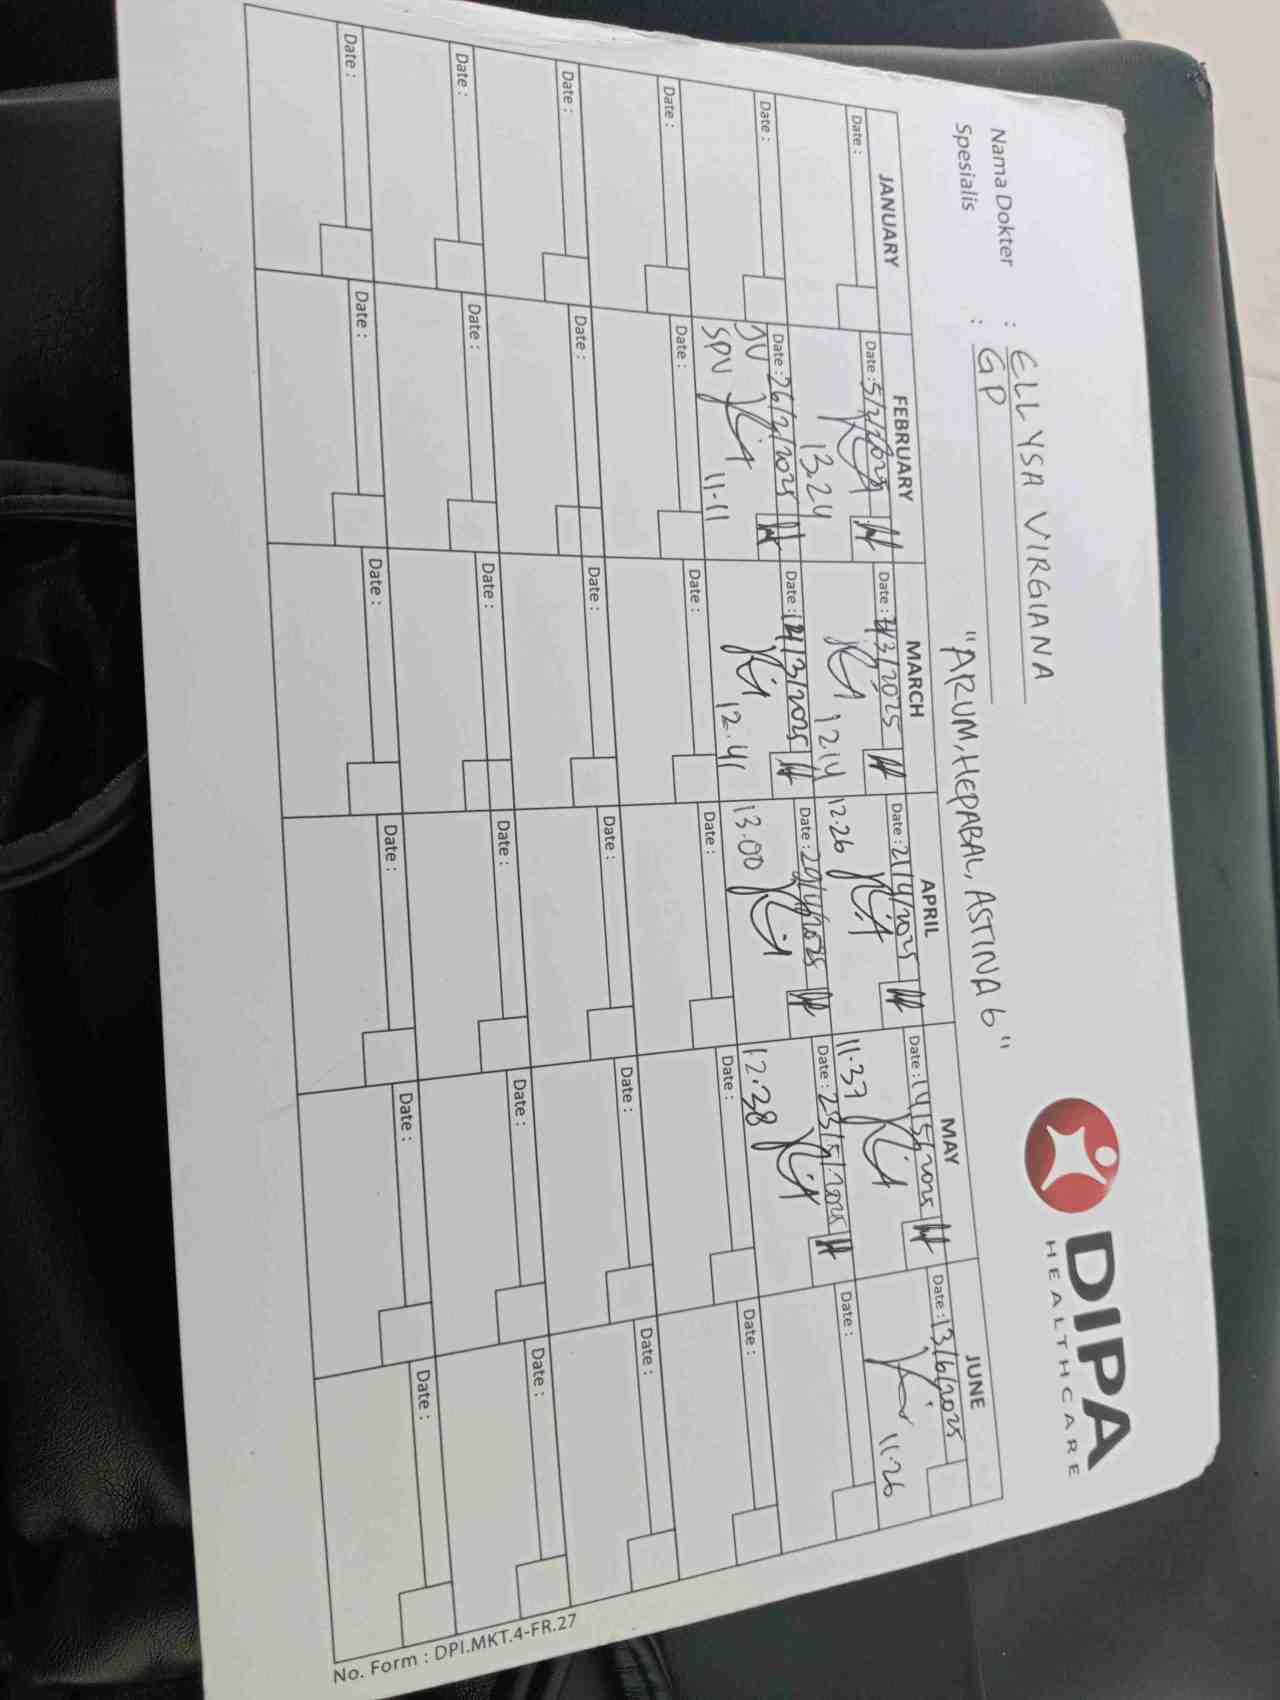 Nama Dokter : ELLYSA VIRGIANA
Spesialis : GP
"ARUM, HEPABAL, ASTINA 6"
DIPA
HEALTHCARE
JANUARY FEBRUARY MARCH APRIL MAY JUNE
Date : Date : 5/2/2025 Date : 7/3/2025 Date : 21/4/2025 Date : 14/5/2025 Date : 13/6/2025
13.24 12.14 12.26 11.37 11.26
Date : Date : 26/2/2025 Date : 14/3/2025 Date : 29/4/2025 Date : 23/5/2025 Date :
JV
SPV 11.11 12.41 13.00 12.38
Date : Date : Date : Date : Date : Date :
Date : Date : Date : Date : Date : Date :
Date : Date : Date : Date : Date : Date :
Date : Date : Date : Date : Date : Date :
No. Form : DPI.MKT.4-FR.27